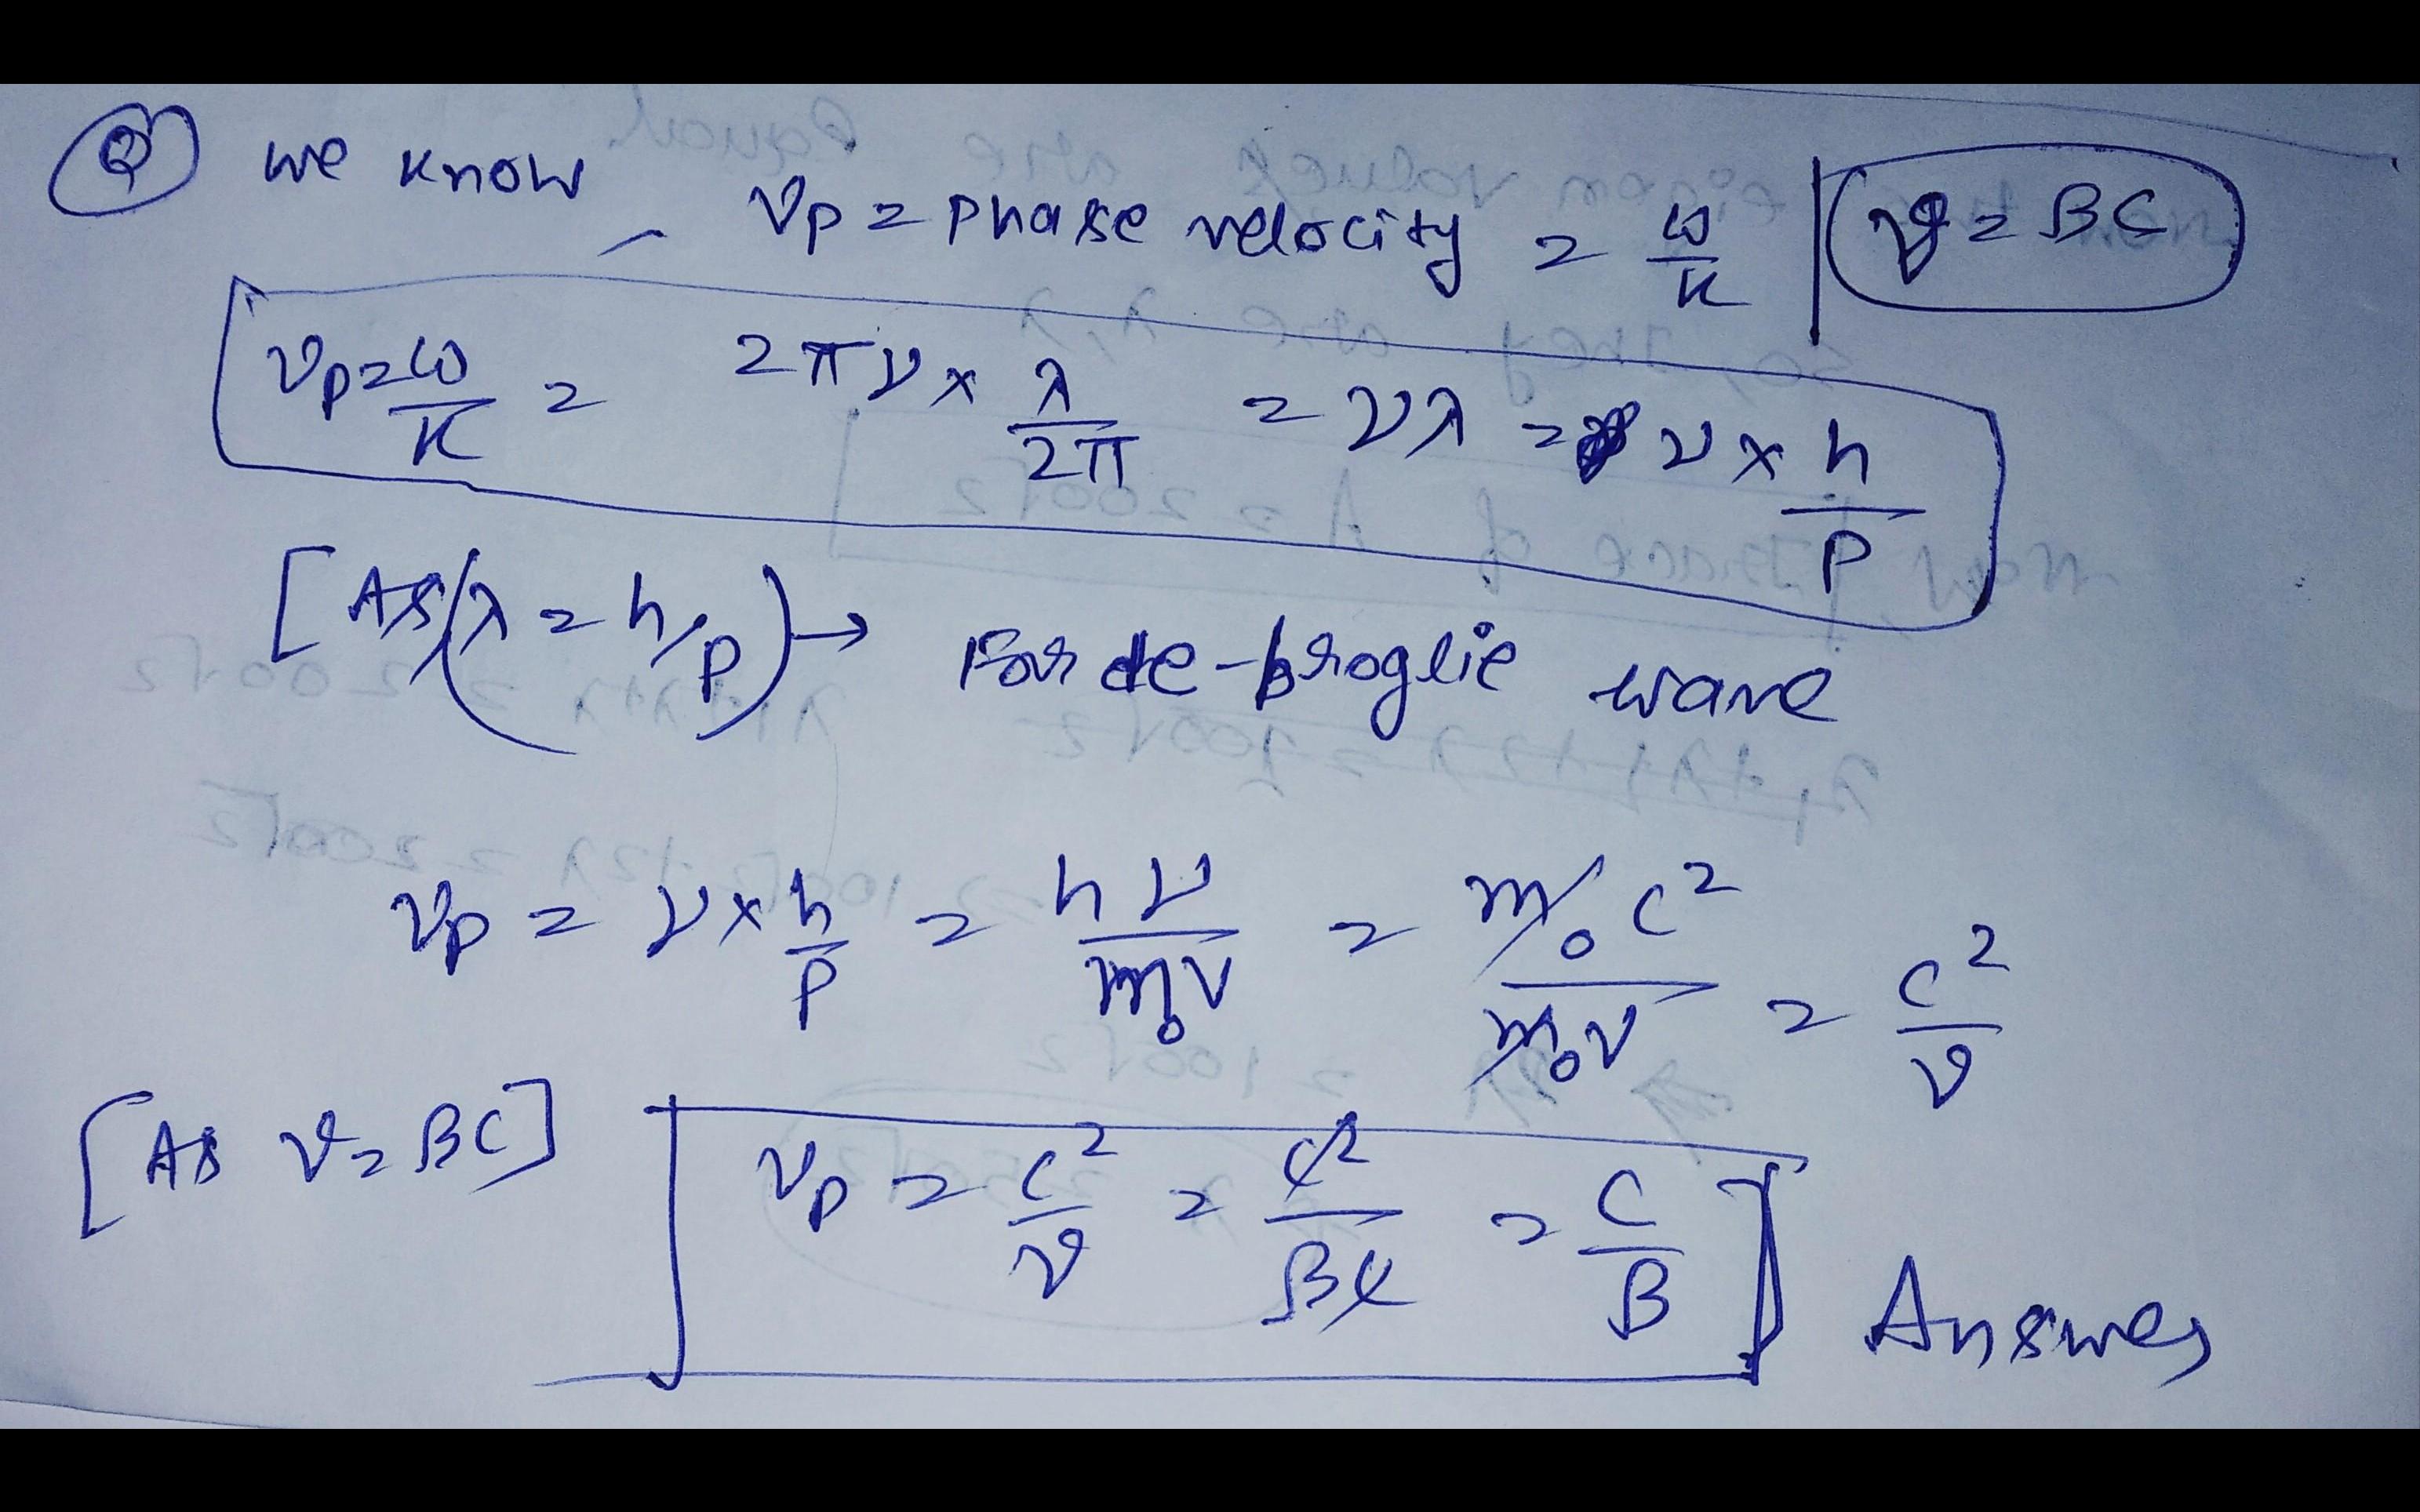 Q we know
vp = phase velocity = ω/k | v = βc
vp = ω/k = 2πν × λ/2π = νλ = ν × h/p
[As (λ = h/p) → For de-broglie wave
vp = ν × h/p = hν/m₀v = m₀c²/m₀v = c²/v
[As v = βc] vp = c²/v = c²/βc = c/β Answer